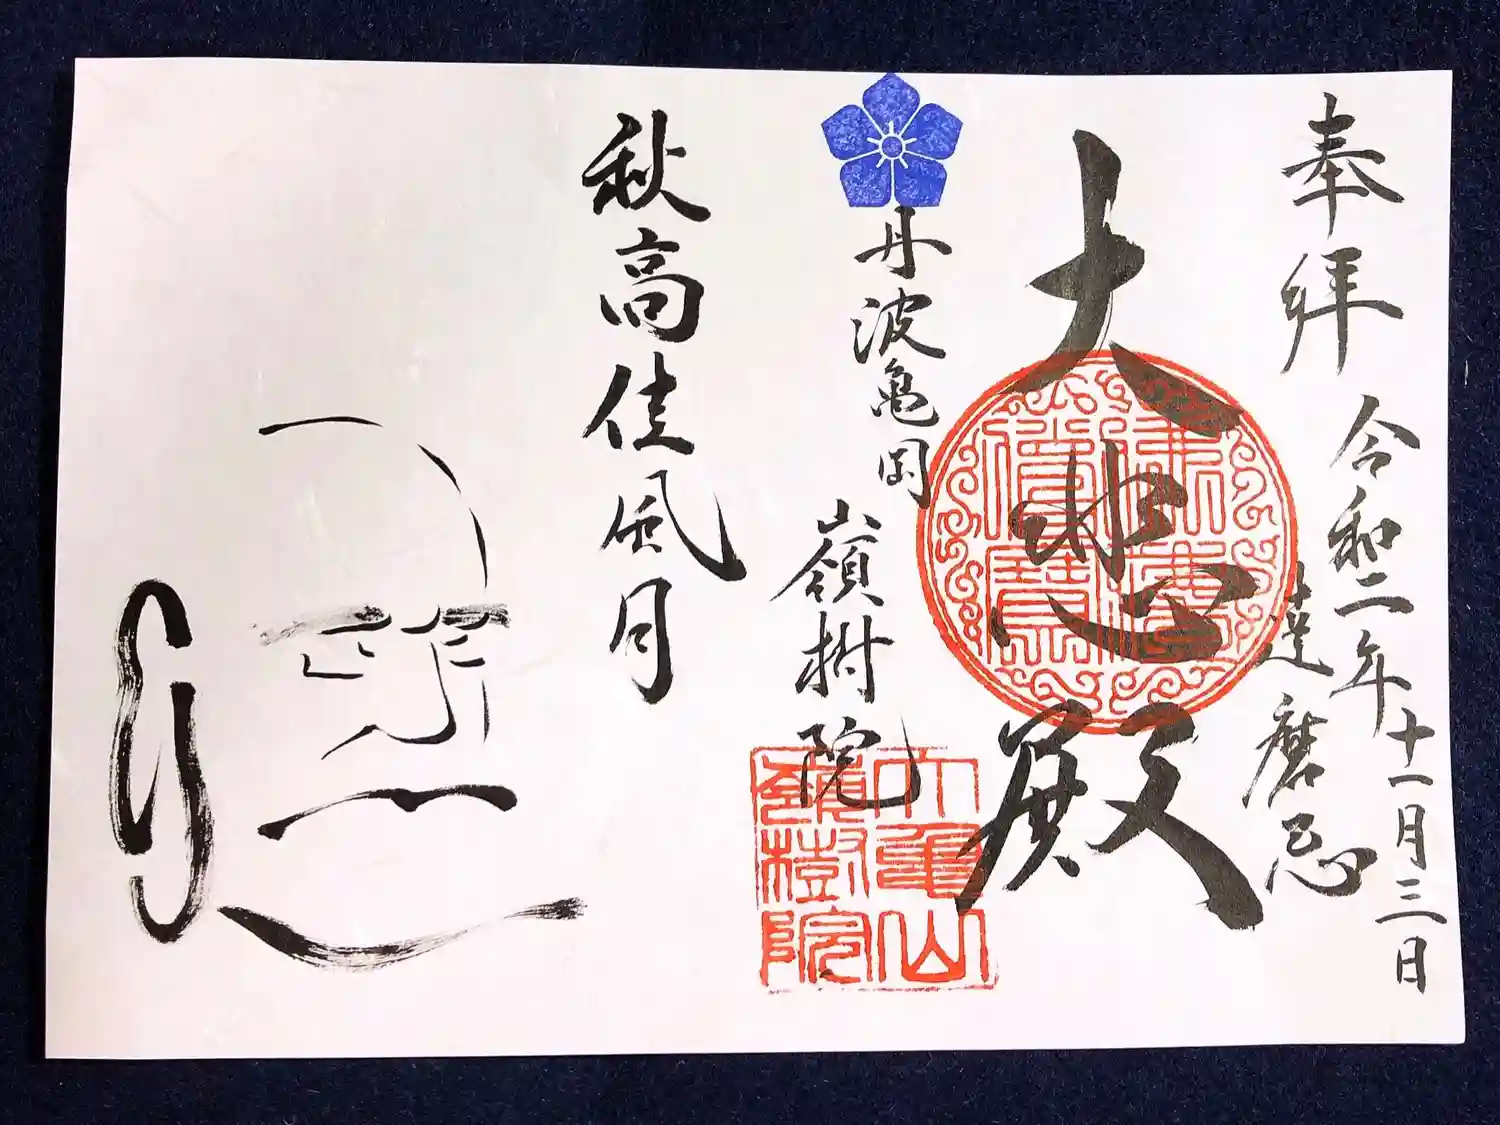 奉拝
令和二年十一月三日
達磨忌
大悲殿
丹波亀岡
嶺樹院
亀山
嶺樹院
秋高佳風月